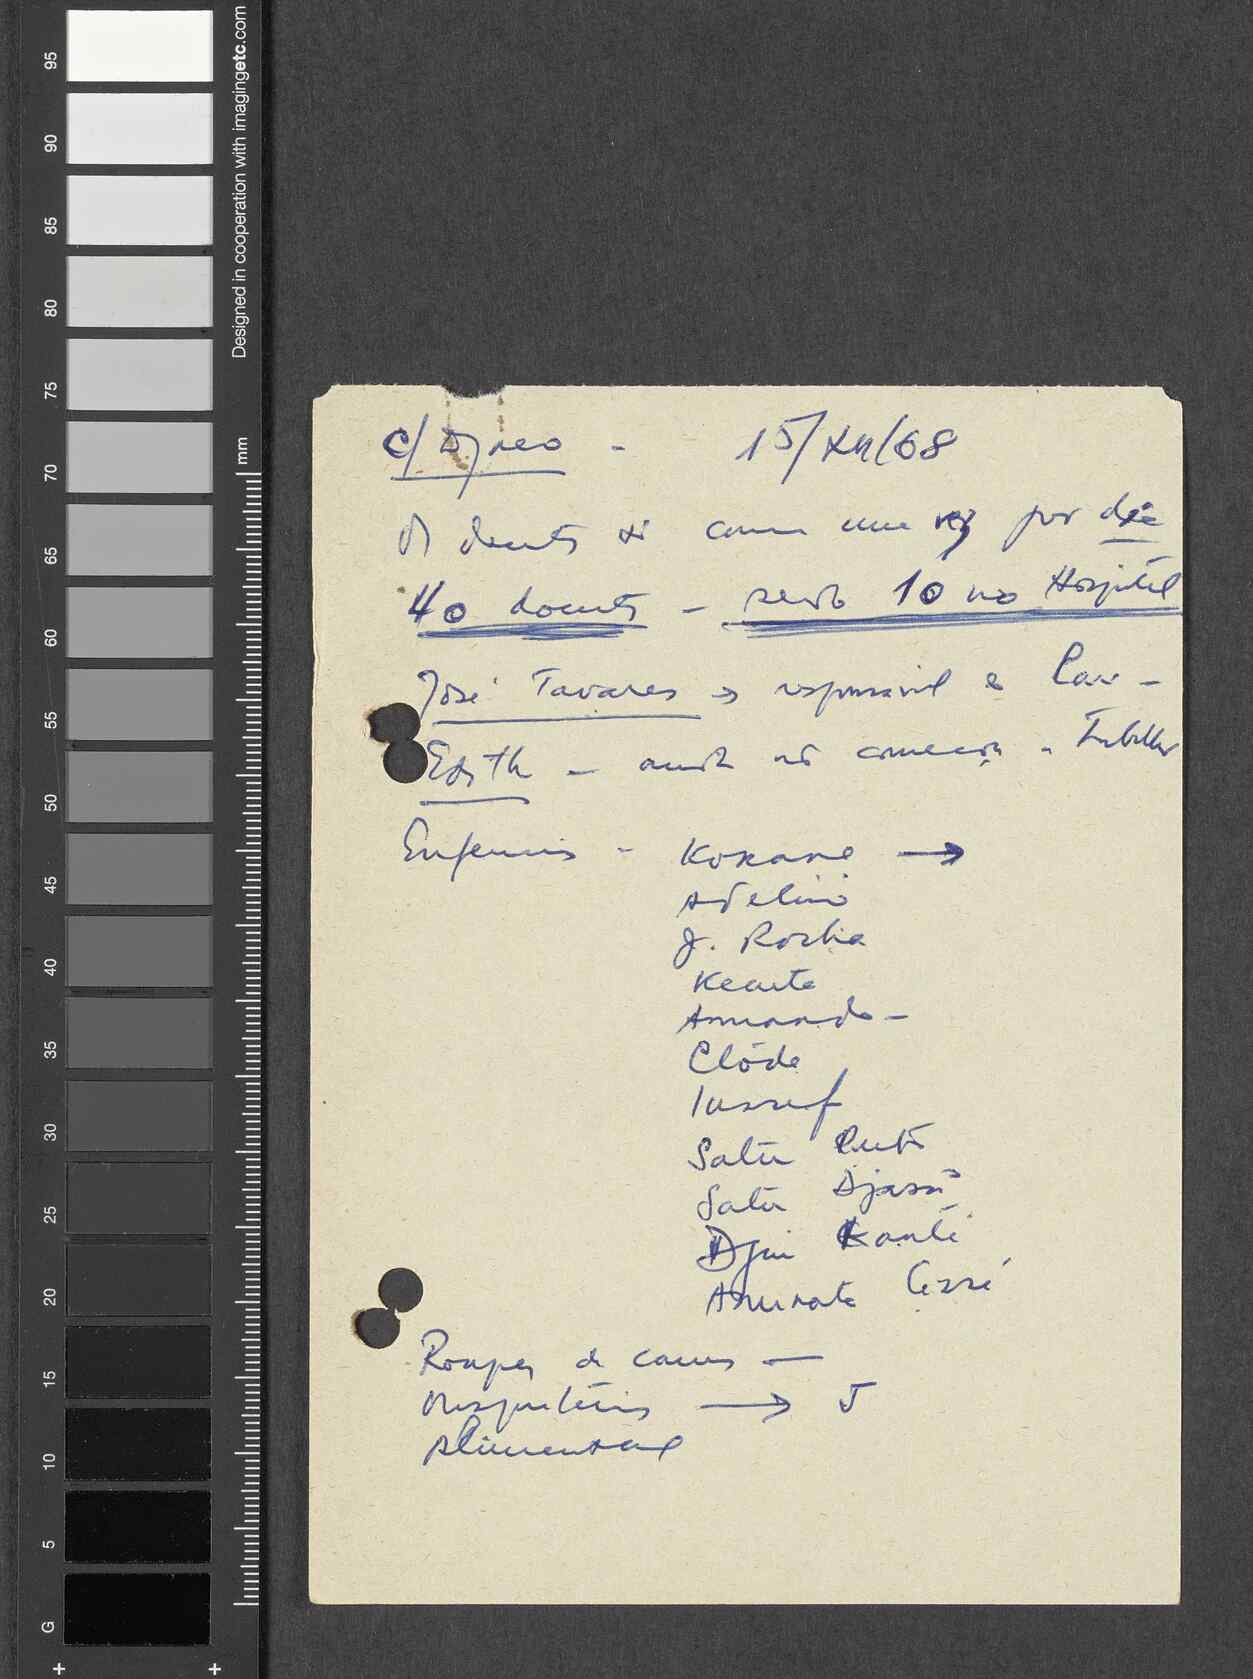 95
90
85
80
75
70
65
60
55
50
45
40
35
30
25
20
15
10
5
G
Designed in cooperation with imagingetc.com
mm
c/ - 15/XII/68
Os doentes só comem uma vez por dia
40 doentes - sendo 10 no Hospital
José Tavares → responsável e
- ainda não começou -
Enfermeiros - Konane →
Adelino
J. Rocha
Keauta
Armando -
Clóde
Iussuf
Satu
Satu Djassi
Djui Kanté
Aminata Cissé
Roupas de camas —
Mosquiteiros → 5
Alimentação